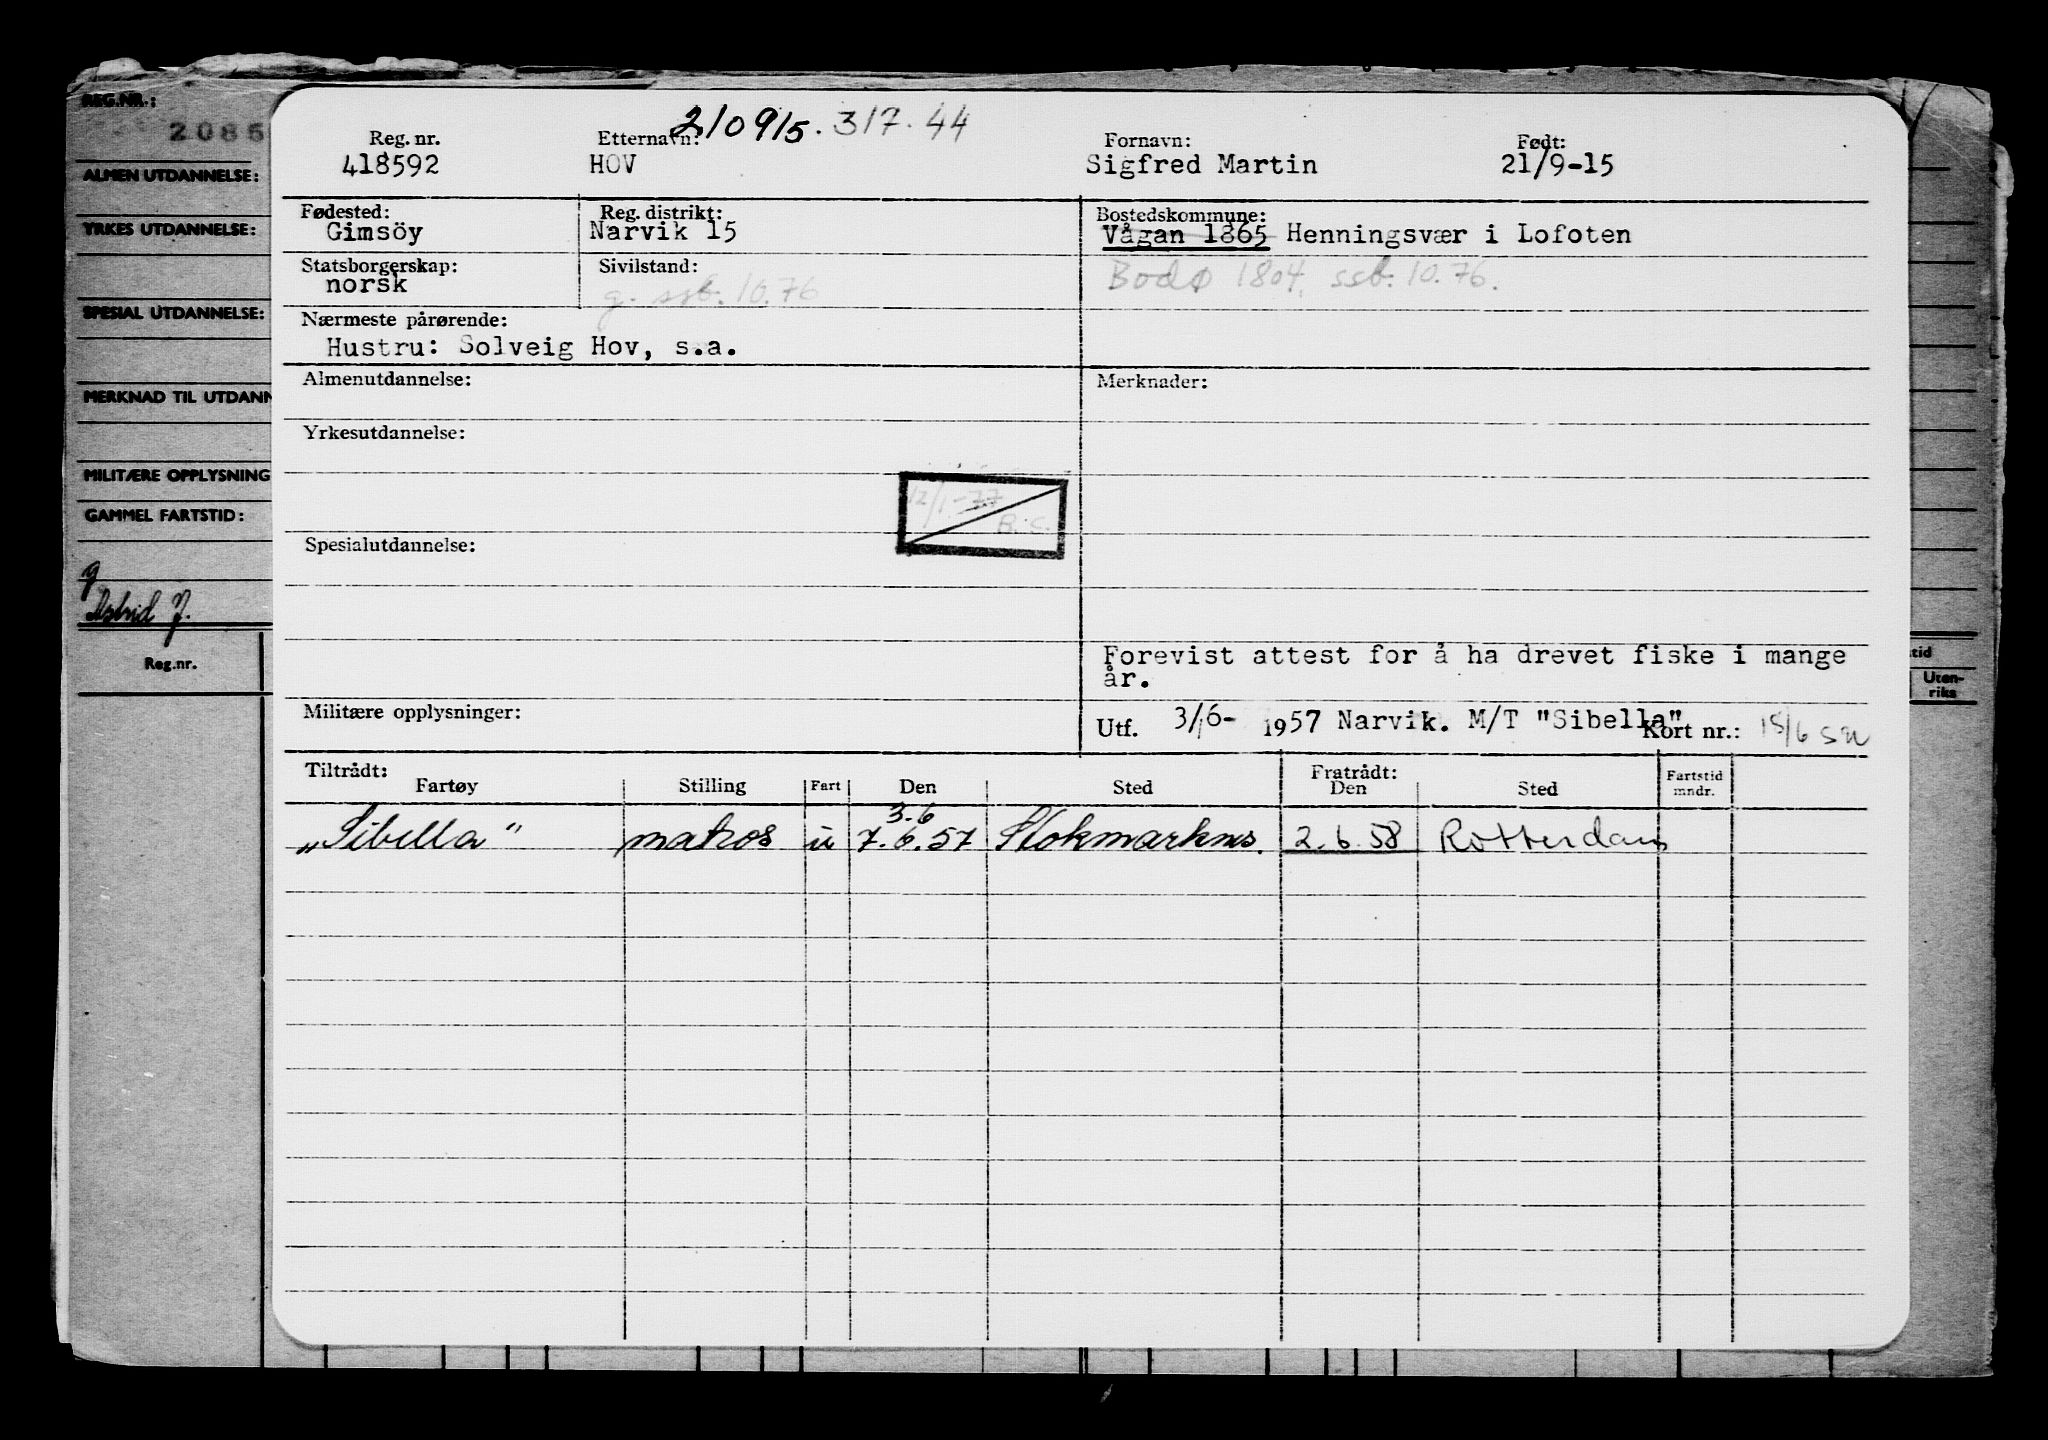 REG.NR.:
2085
ALMEN UTDANNELSE:
YRKES UTDANNELSE:
SPESIAL UTDANNELSE:
MERKNAD TIL UTDANN
MILITÆRE OPPLYSNING
GAMMEL FARTSTID:
g
Astrid J.
Reg.nr.
210915. 317.44
Reg. nr. Etternavn: Fornavn: Født:
418592 HOV Sigfred Martin 21/9-15
Fødested: Reg. distrikt: Bostedskommune:
Gimsöy Narvik 15 Vågan 1865 Henningsvær i Lofoten
Statsborgerskap: Sivilstand:
norsk g. ssb. 10.76 Bodø 1804. ssb. 10.76.
Nærmeste pårørende:
Hustru: Solveig Hov, s.a.
Almenutdannelse: Merknader:
Yrkesutdannelse:
12/1-77
B.C.
Spesialutdannelse:
Forevist attest for å ha drevet fiske i mange
år.
Militære opplysninger:
Utf. 3/6- 1957 Narvik. M/T "Sibella" Kort nr.: 18/6 sn
Tiltrådt: Fratrådt: Fartstid
Fartøy Stilling Fart Den Sted Den Sted mndr.
3.6
„Sibella" matros u 7.6.57 Stokmarknes. 2.6.58 Rotterdam
tid
Uten-
riks